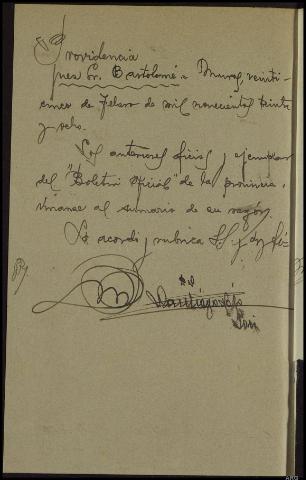 Providencia
Juez Sr. Bartolomé = Muros, veinti-
cinco de Febrero de mil novecientos treinta
y ocho.
Los anteriores oficios y ejemplar
del "Boletin Oficial" de la provincia,
únanse al sumario de su razón.
Lo acordó y rubrica S.S. y doy fé.-